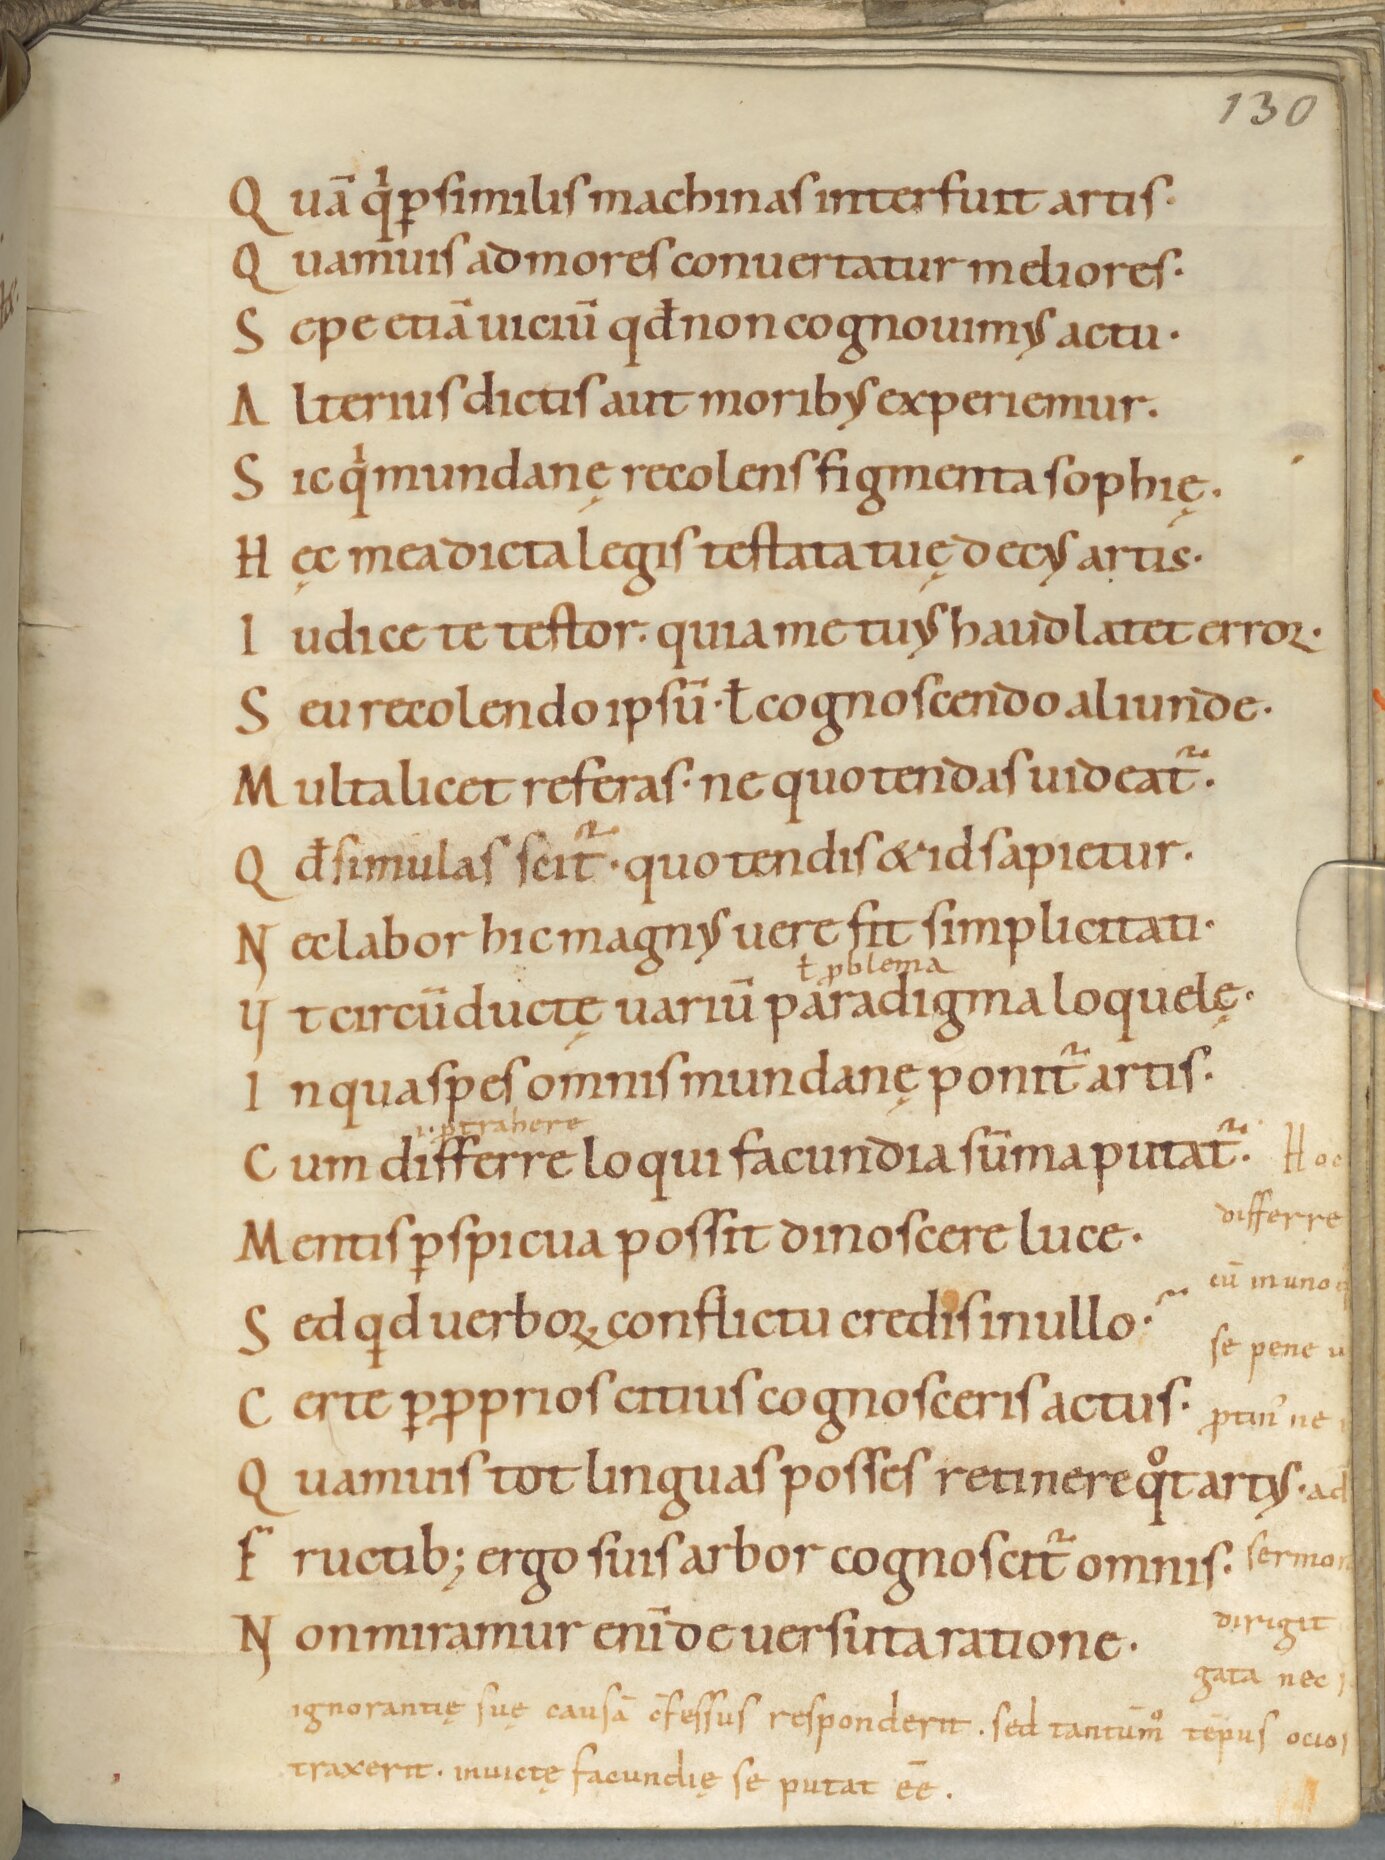 130
Quā q̇ꝑsimilis machinas interfuit artis.
Quamuis ad mores conuertatur meliores.
Sepe etiā uiciū qđ non cognouimꝰ actu.
Alterius dictis aut moribꝰ experiemur.
Sic q̇ mundanę recolens figmenta sophię.
Hęc mea dicta legis testata tuę decꝰ artis.
Iudice te testor. quia me tuꝰ haud latet error.
Seu recolendo ipsū. ł cognoscendo aliunde.
Multa licet referas. ne quo tendas uideat᷑.
Qđ simulas scit᷑. quo tendis & id sapietur.
Nec labor hic magnꝰ uere fit simplicitati.
ł ꝓblema
Vt circūductę uariū paradigma loquelę.
In qua spes omnis mundanę ponit᷑ artis.
.i. ꝓtrahere
Cum differre loqui facundia sūma putat᷑.
Mentis ꝑspicua possit dinoscere luce.
Sed qd uerboꝝ conflictu credis in ullo.
Certe ꝑ ꝓprios citius cognosceris actus.
Quamuis tot linguas posses retinere qͦt artꝰ.
Fructib; ergo suis arbor cognoscit᷑ omnis.
Non miramur eni̅ de uersuta ratione.
Hoc
differre
cū in uno
se pene
ꝓtin̄ ne
ad
sermon
dirigit
gata nec
ignorantię suę causā c̄fessus responderit. sed tantūmͦ tēpus
traxerit. inuictę facundię se putat ēē.